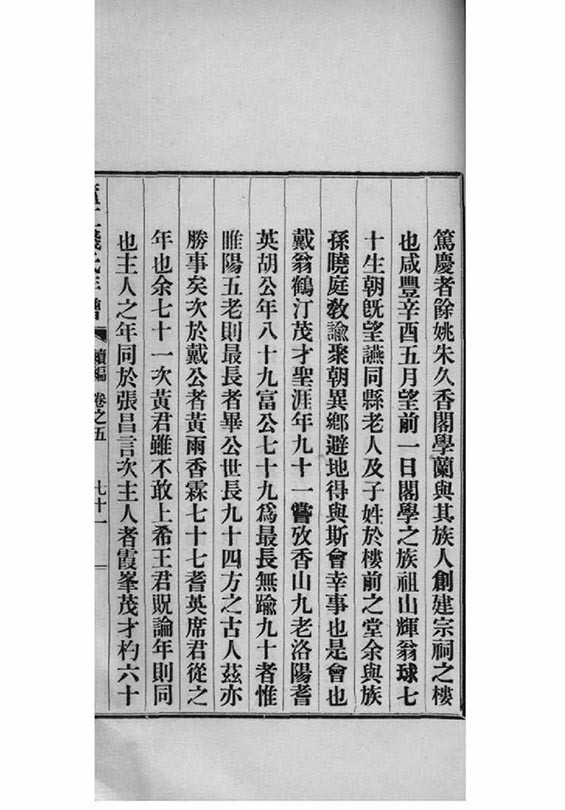 篤慶者餘姚朱久香閣學蘭與其族人創建宗祠之樓
也咸豐辛酉五月望前一日閣學之族祖山輝翁球七
十生朝旣望讌同縣老人及子姓於樓前之堂余與族
孫曉庭敎諭聚朝異鄕避地得與斯會幸事也是會也
戴翁鶴汀茂才聖涯年九十一嘗攷香山九老洛陽耆
英胡公年八十九富公七十九爲最長無踰九十者惟
睢陽五老則最長者畢公世長九十四方之古人茲亦
勝事矣次於戴公者黃雨香霖七十七耆英席君從之
年也余七十一次黃君雖不敢上希王君貺論年則同
也主人之年同於張昌言次主人者霞峯茂才杓六十
錢氏年譜 續編 卷之五 七十一